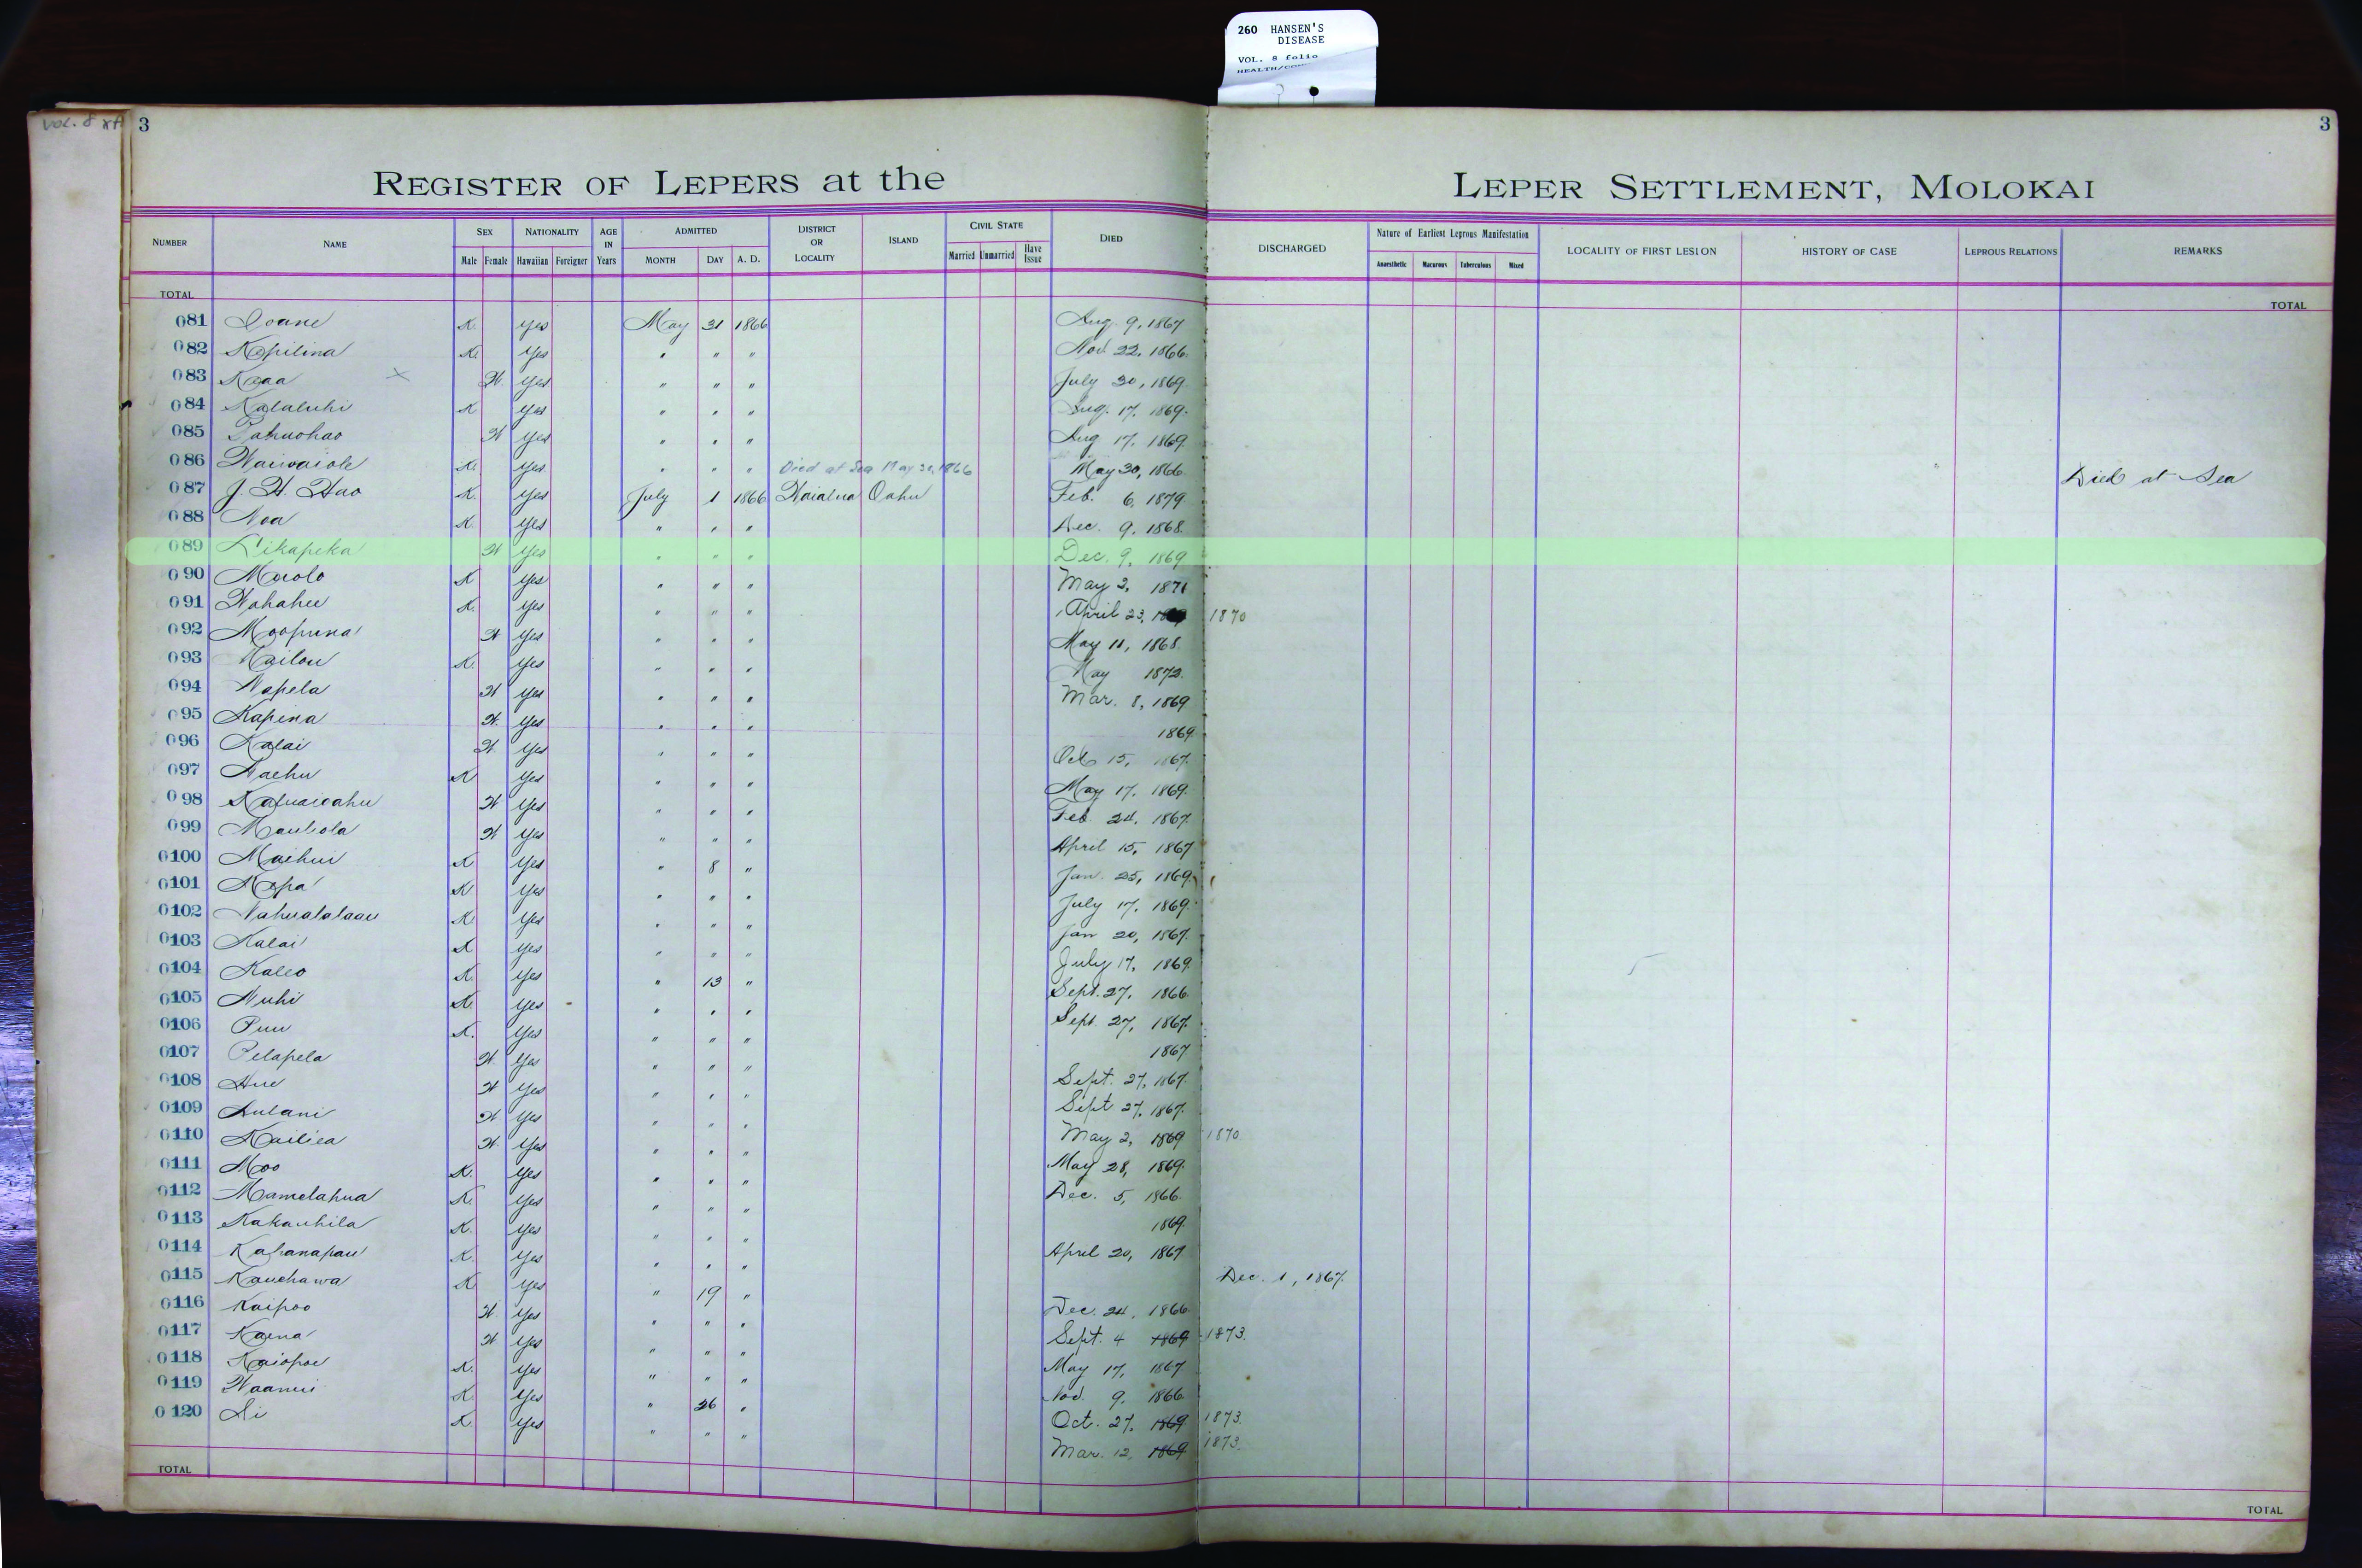 260 HANSEN'S
DISEASE
VOL. 8 folio
VOL. 8
3
3
REGISTER OF LEPERS at the LEPER SETTLEMENT, MOLOKAI
NUMBER NAME SEX NATIONALITY AGE IN Years ADMITTED DISTRICT OR LOCALITY ISLAND CIVIL STATE DIED DISCHARGED Nature of Earliest Leprous Manifestation LOCALITY OF FIRST LESION HISTORY OF CASE LEPROUS RELATIONS REMARKS
Male Female Hawaiian Foreigner MONTH DAY A. D. Married Unmarried Have Issue Anaesthetic Macurous Tuberculous Mixed
TOTAL TOTAL
081 Ioane K. Yes May 31 1866 Aug. 9, 1867
082 Kapilina K. Yes " " " Nov. 22, 1866.
083 Kaaa W. Yes " " " July 30, 1869.
084 Kalaluhi K Yes " " " Aug. 17, 1869.
085 W Yes " " " Aug 17, 1869.
086 Waiwaiole K. Yes " " " Died at Sea May 30, 1866 May 30, 1866. Died at Sea
087 J. H. Hao K. Yes July 1 1866 Waialua Oahu Feb. 6, 1879
088 Noa K. Yes " " " Dec. 9, 1868.
089 Likapeka W Yes " " " Dec. 9, 1869
090 K Yes " " " May 2, 1871
091 K. Yes " " " April 23, 1870
092 Moopuna W Yes " " " May 11, 1868.
093 Kailou K. Yes " " " May 1872.
094 Napela W Yes " " " Mar. 8, 1869
095 Kapina W. Yes " " " 1869.
096 Kalai W Yes " " " Oct 15, 1867.
097 Naehu K Yes " " " May 17, 1869.
098 W Yes " " " Feb. 24, 1867.
099 Mauliola W Yes " " " April 15, 1867
0100 Maihui K Yes " 8 " Jan. 25, 1869.
0101 K Yes " " " July 17, 1869.
0102 Nahualalaau K Yes " " " Jan 20, 1867.
0103 Kalai K Yes " " " July 17, 1869.
0104 Kaleo K. Yes " 13 " Sept. 27, 1866.
0105 Nuhi K. Yes " " " Sept. 27, 1867.
0106 Puu K. Yes " " " 1867
0107 Pelapela W Yes " " " Sept. 27, 1867.
0108 Hue W Yes " " " Sept 27, 1867.
0109 Aulani W Yes " " " May 2, 1869 1870
0110 Kailiea W. Yes " " " May 28, 1869.
0111 Moo K. Yes " " " Dec. 5, 1866.
0112 Mamelahua K. Yes " " " 1869.
0113 Kakauhila K. Yes " " " April 20, 1867
0114 Kahanapau K. Yes " " " Dec. 1, 1867.
0115 Kauehawa K. Yes " 19 " Dec. 24, 1866.
0116 Kaipoo W Yes " " " Sept. 4 1869 1873.
0117 Kaena W Yes " " " May 17, 1867
0118 Kaiopoe K. Yes " " " Nov. 9, 1866.
0119 Waanui K Yes " 26 " Oct. 27, 1869 1873.
0120 Li K. Yes " " " Mar. 12, 1869 1873.
TOTAL TOTAL